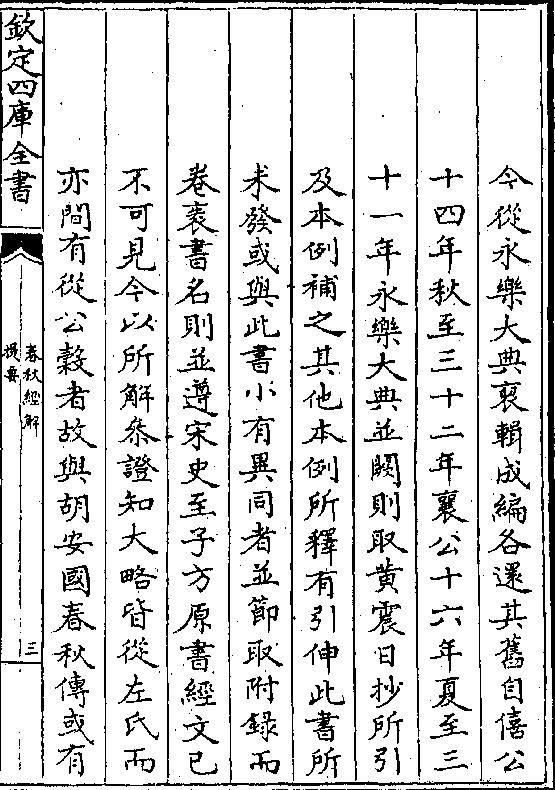 今從永樂大典裒輯成編各還其舊自僖公
十四年秋至三十二年襄公十六年夏至三
十一年永樂大典並闕則取黄震日抄所引
及本例補之其他本例所釋有引伸此書所
未發或與此書小有異同者並節取附録而
卷袠書名則並遵宋史至子方原書經文已
不可見今以所解叅證知大略皆從左氏而
亦間有從公穀者故與胡安國春秋傳或有
欽定四庫全書
春秋經解
提要
三